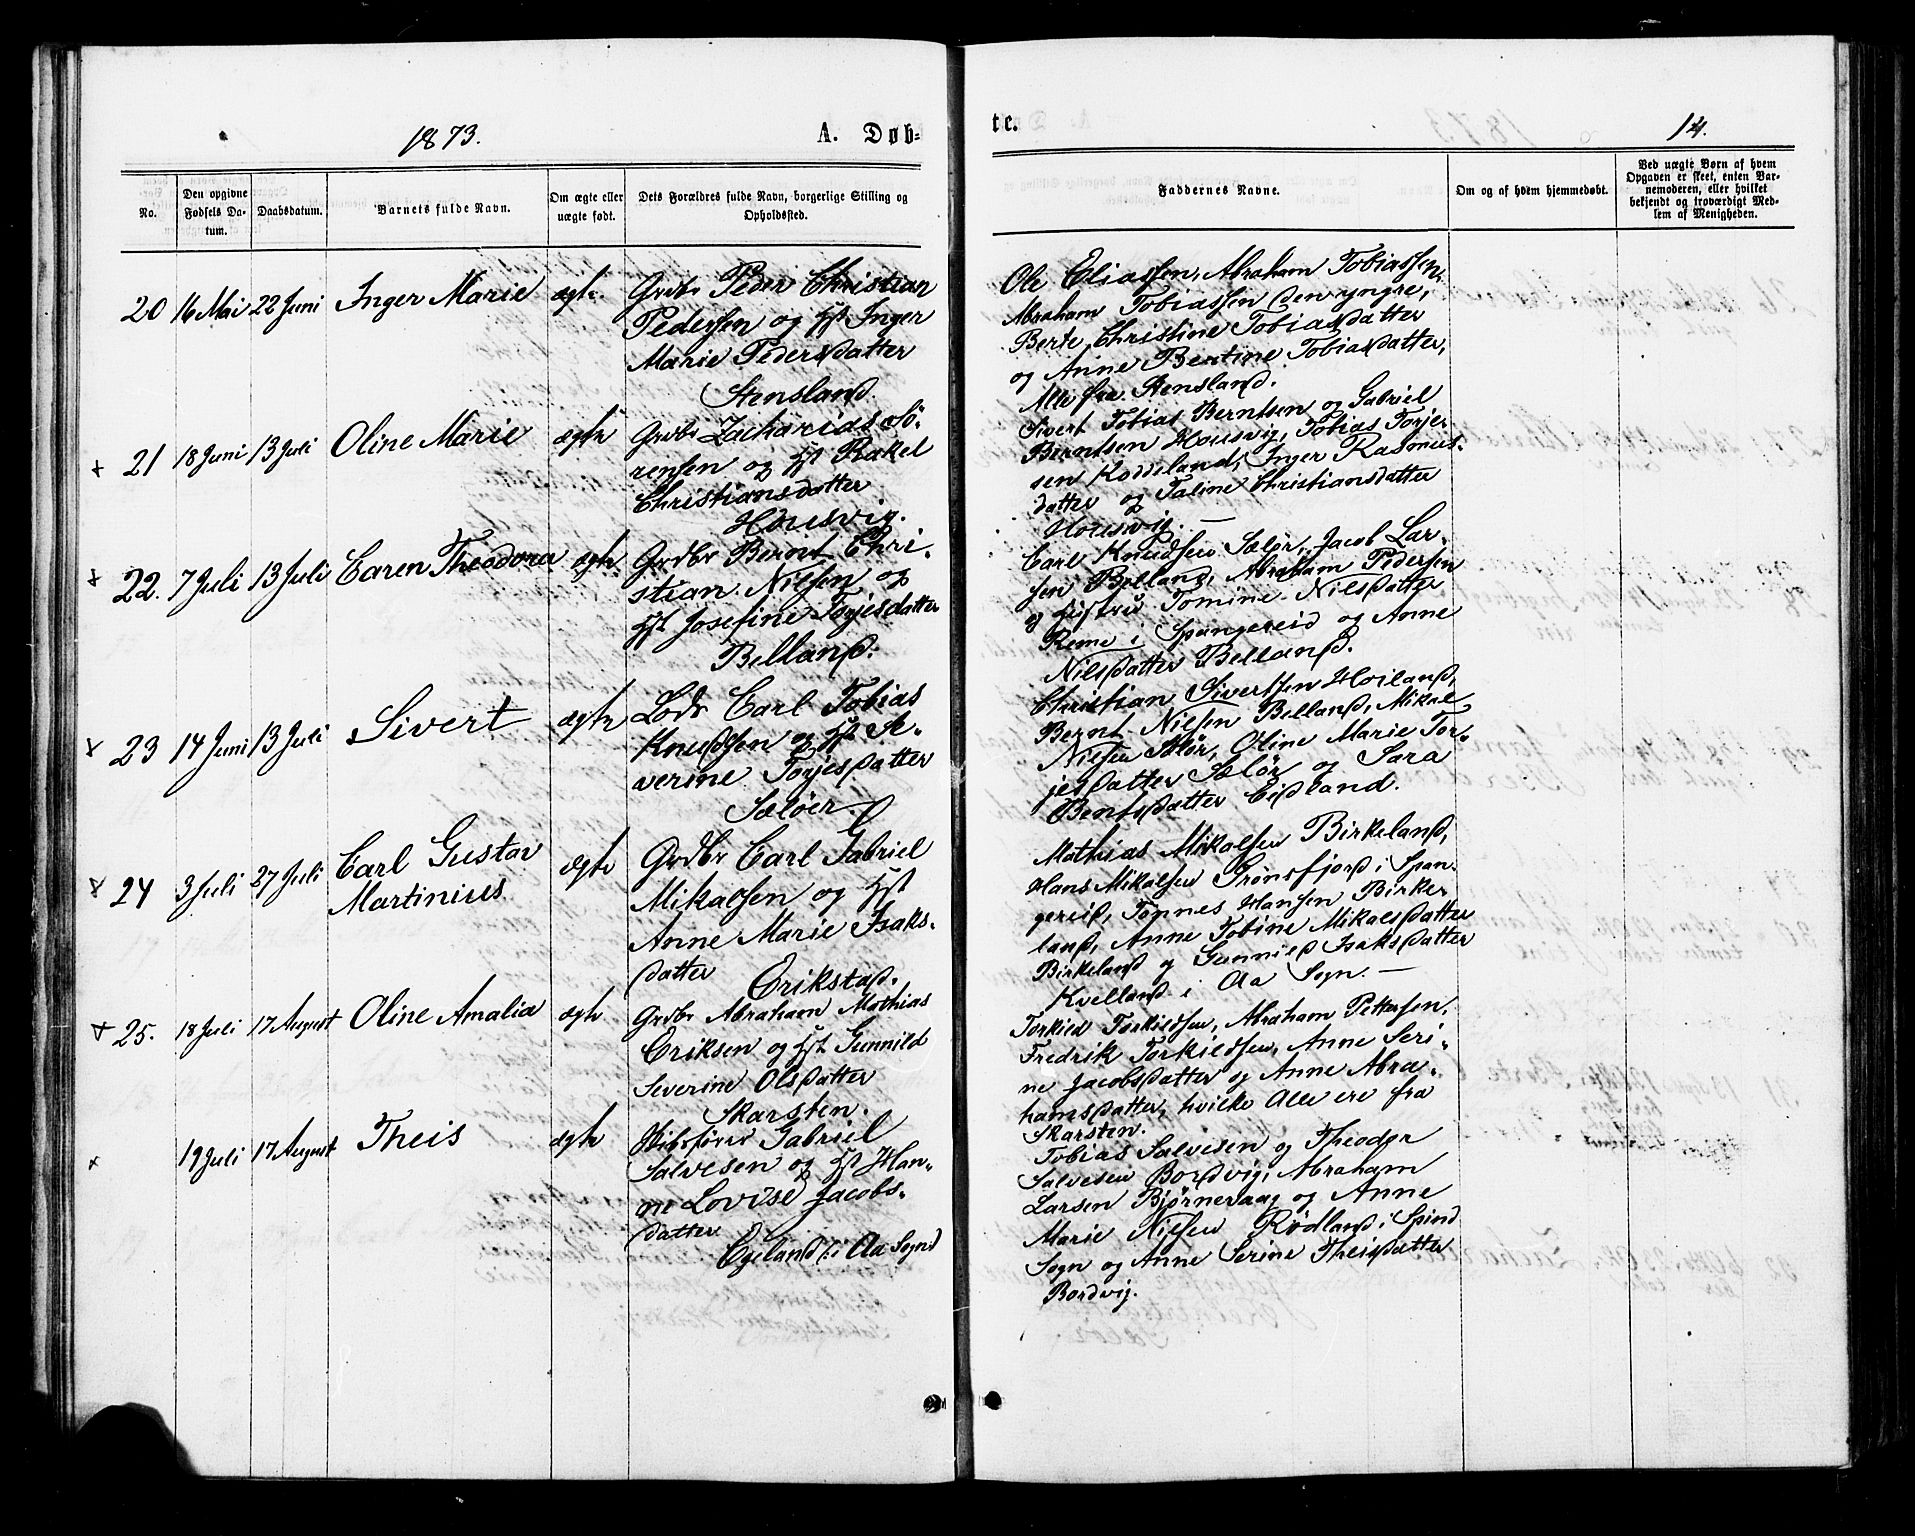 1873.
A. Døb-
te.
14.
No.
Den opgivne
Fødsels Da-
tum.
Daabsdatum.
Barnets fulde Navn.
Om ægte eller
uægte født.
Dets Forældres fulde Navn, borgerlige Stilling og
Opholdssted.
Faddernes Navne.
Om og af hvem hjemmedøbt.
Ved uægte Børn af hvem
Opgaven er skeet, enten Bar-
nemoderen, eller hvilket
bekjendt og troværdigt Med-
lem af Menigheden.
20 16 Mai 22 Juni Inger Marie ægte
Grdbr Peder Christian
Pedersen og Hst Inger
Marie Pedersdatter
Stensland.
Ole Eliassen, Abraham Tobiassen,
Abraham Tobiassen den yngre,
Berte Christine Tobiasdatter
og Anne Bertine Tobiasdatter,
Alle fra Stensland.
21 18 Juni 13 Juli Oline Marie ægte
Grdbr Zacharias Sö-
rensen og Hst Rakel
Christiansdatter
Housvig.
Sivert Tobias Berntsen og Gabriel
Berntsen Housvig, Tobias Torjer
sen Koddeland, Inger Rasmus-
datter og Taline Christiansdatter
Housvig. —
22. 7 Juli 13 Juli Caren Theodora ægte
Grdbr Bernt Chri-
stian Nilsen og
Hst Josefine Torjesdatter
Belland.
Carl Knudsen Sælør, Jacob Lar-
sen Belland, Abraham Pedersen
og Hustru Tomine Nilsdatter
Reme i Spangereid og Anne
Nilsdatter Belland.
23 14 Juni 13 Juli Sivert ægte
Lods Carl Tobias
Knudsen og Hst Se-
verine Torjesdatter
Sæløer.
Christian Sivertsen Hoiland,
Bernt Nilsen Belland, Mikal
Nielsen Sælör, Oline Marie Tor-
jesdatter Sælör og Sara
Berntsdatter Eidland.
24 3 Juli 27 Juli Carl Gustav
Martinius
ægte
Grdbr Carl Gabriel
Mikalsen og Hst
Anne Marie Isaks-
datter Erikstad.
Mathias Mikalsen Birkeland,
Hans Mikalsen Grönsfjord i Span-
gereid, Tønnes Hansen Birke-
land, Anne Tobine Mikalsdatter
Birkeland og Gunnild Isaksdatter
Kvelland i Aa Sogn. —
25. 18 Juli 17 August Oline Amalia ægte
Grdbr Abraham Mathias
Eriksen og Hst Gunnild
Severine Olsdatter
Skarsten.
Torkild Torkildsen, Abraham Pettersen,
Fredrik Torkildsen, Anne Seri-
ne Jacobsdatter og Anne Abra-
hamsdatter, hvilke Alle ere fra
Skarsten.
19 Juli 17 August Theis ægte
Skibsfører Gabriel
Salvesen og Hst Han-
ne Lovise Jacobs-
datter
Egeland i Aa Sogn
Tobias Salvesen og Theodor
Salvesen Bordvig, Abraham
Larsen Bjørnevaag og Anne
Marie Nielsen Rødland i Spind
Sogn og Anne Serine Theisdatter
Bordvig.